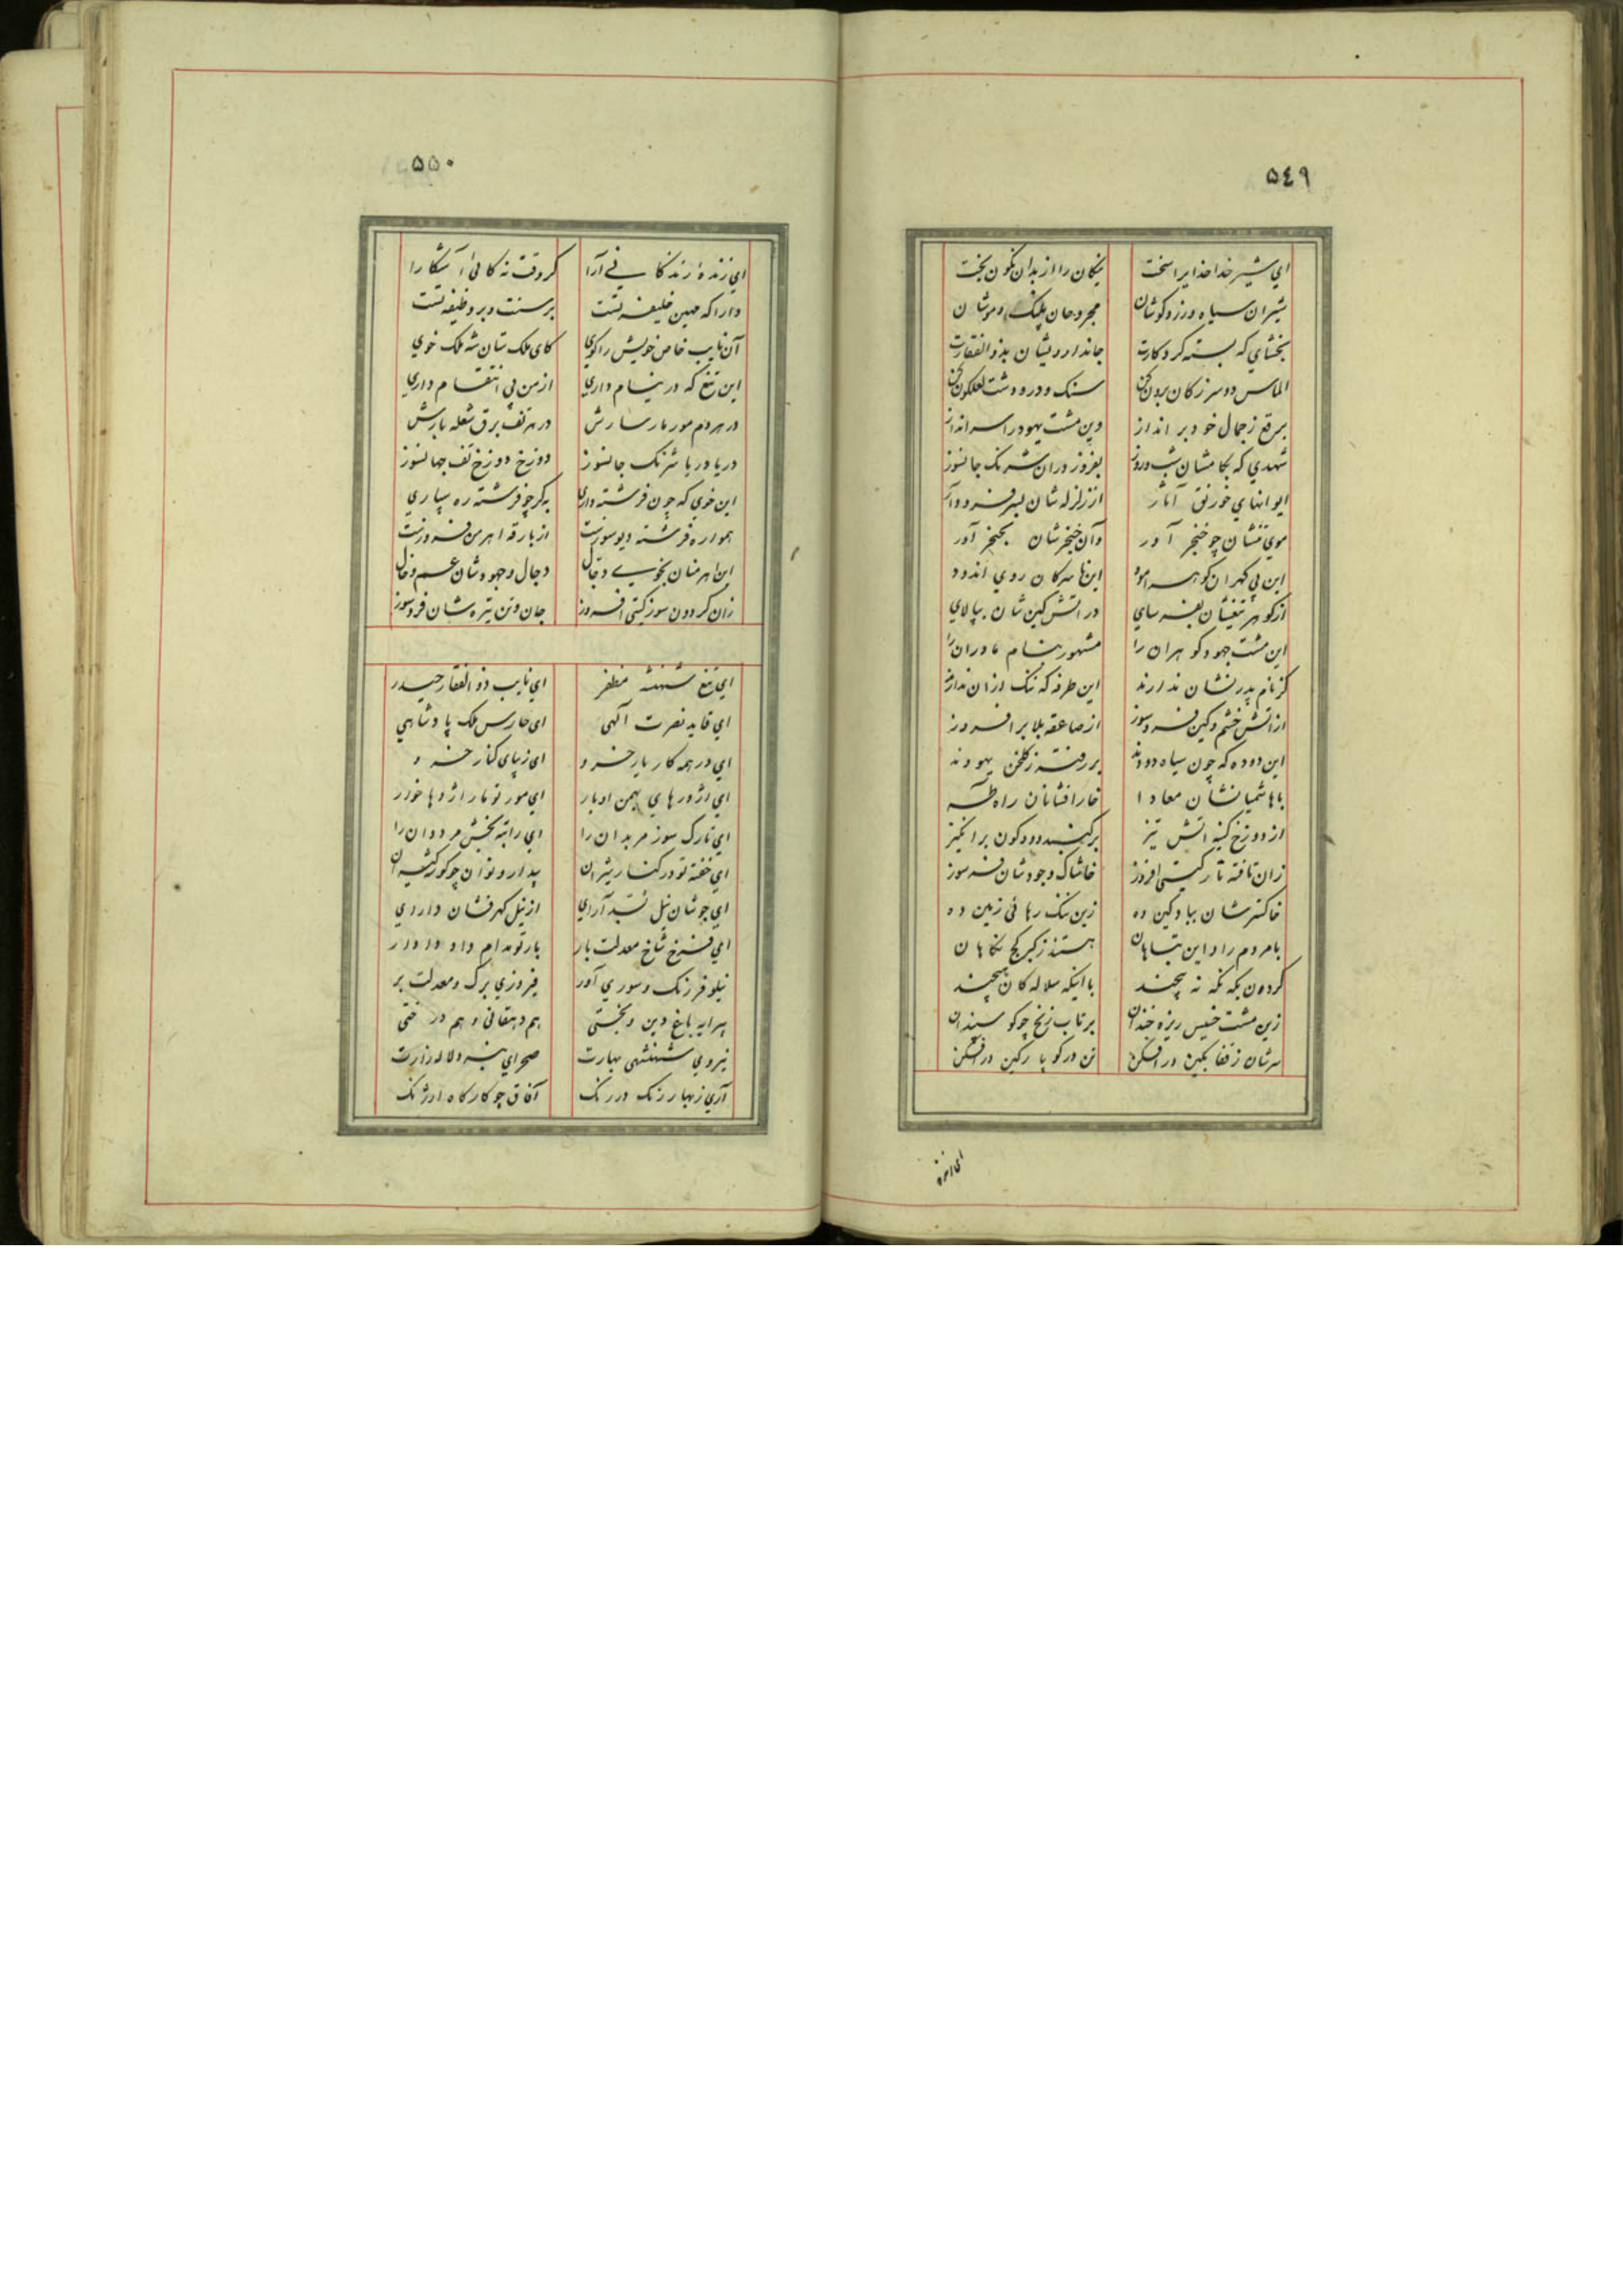 ٥٤٩
ای شیر خدا خدایرا سخت نیکان را از بدان نگون بخت
شیران سیاه و زرد گوشان مجروحان پلنگ و موشان
بخشای که بسته کرد کارت جاندارو لیشان بذوالفقارت
الماس دو سر ز کان برون کن سنک و در و دشت لعلگون کن
برقع ز جمال خود بر انداز وین مشت یهود را سر انداز
شهدی که بکامشان شب و روز بفروز در آن شرنک جانسوز
ایوانهای خورنق آثار از زلزله شان بسر فرود آر
موی تنشان چو خنجر آور وآن خنجرشان بحنجر آور
این بی گهران گوهر اندود این ناسرگان روی اندود
از گوهر تیغشان بفرسای در آتش کین شان بپالای
این مشت جهود گوهران را مشهور بنام مادران را
کز نام پدر نشان ندارند این طرفه که ننک از آن ندارند
از آتش خشم و کین فرو سوز از صاعقه بلا بر افروز
این دوده که چون سیاه دودند بر رفته ز گلخن یهودند
با هاشمیانشان معادا خار افشانان راه طه
از دوزخ کینه آتش تیز بر گنبد دود گون بر انگیز
زان تافته نار گیتی افروز خاشاک وجودشان فرو سوز
خاکسترشان بباد کین ده زین ننک رهائی زمین ده
با مردم راد این تباهان هستند ز کبر کج نگاهان
گردون بکه نکه نه پیچند با اینکه سلاله کان هیچند
زین مشت خسیس ریزه خندان برتاب زنخ چو گوسپندان
سرشان ز قفا بکین در افکن تن در گو با رکین در افکن
ای زنده
٥٥٠
ای زندهٔ زندگانی آرا گر وقت نه کائی آشکارا
دارا که مهین خلیفه تست بر سنت و بر وظیفه تست
آن نایب خاص خویش را گوی کای ملک ستان شه ملک خوی
این تیغ که در نیام داری از من پی انتقام داری
در هر دم مور مار سارش در هر تف برق شعله بارش
دریا دریا شرنک جانسوز دوزخ دوزخ تف جهانسوز
این خوی که چون فرشته داری به گر چو فرشته ره سپاری
همواره فرشته دیو سوزست از بارقه اهرمن فروزست
این اهرمنان بخوی دجال دجال و جهودشان عم و خال
زان گردون سوز گیتی افروز جان و تن تیره شان فرو سوز
ای تیغ شهنشه مظفر ای نایب ذوالفقار حیدر
ای قاید نصرت آلهی ای حارس ملک پادشاهی
ای در همه کار یار خسرو ای زیبای کنار خسرو
ای اژدرهای بهمن اوبار ای مور تو مار اژدها خوار
ای تارک سوز مر بدان را ای راتبه بخش مر ددان را
ای خفته تو در کنار شیران بیدار و نوان چو گور شیران
ای جوشان نیل نشید آرای از نیل گهر فشان دارای
ای فرخ شاخ معدلت بار بار تو مدام داد دادار
نیلوفر رنک و سوری آور فیروزی برگ و معدلت بر
پیرایه باغ دین و بختی هم دهقانی و هم درختی
نیروی شهنشهی بهارت صحرای نبرد لاله زارت
آری ز بهار رنک در رنک آفاق چو کارگاه ارژنک